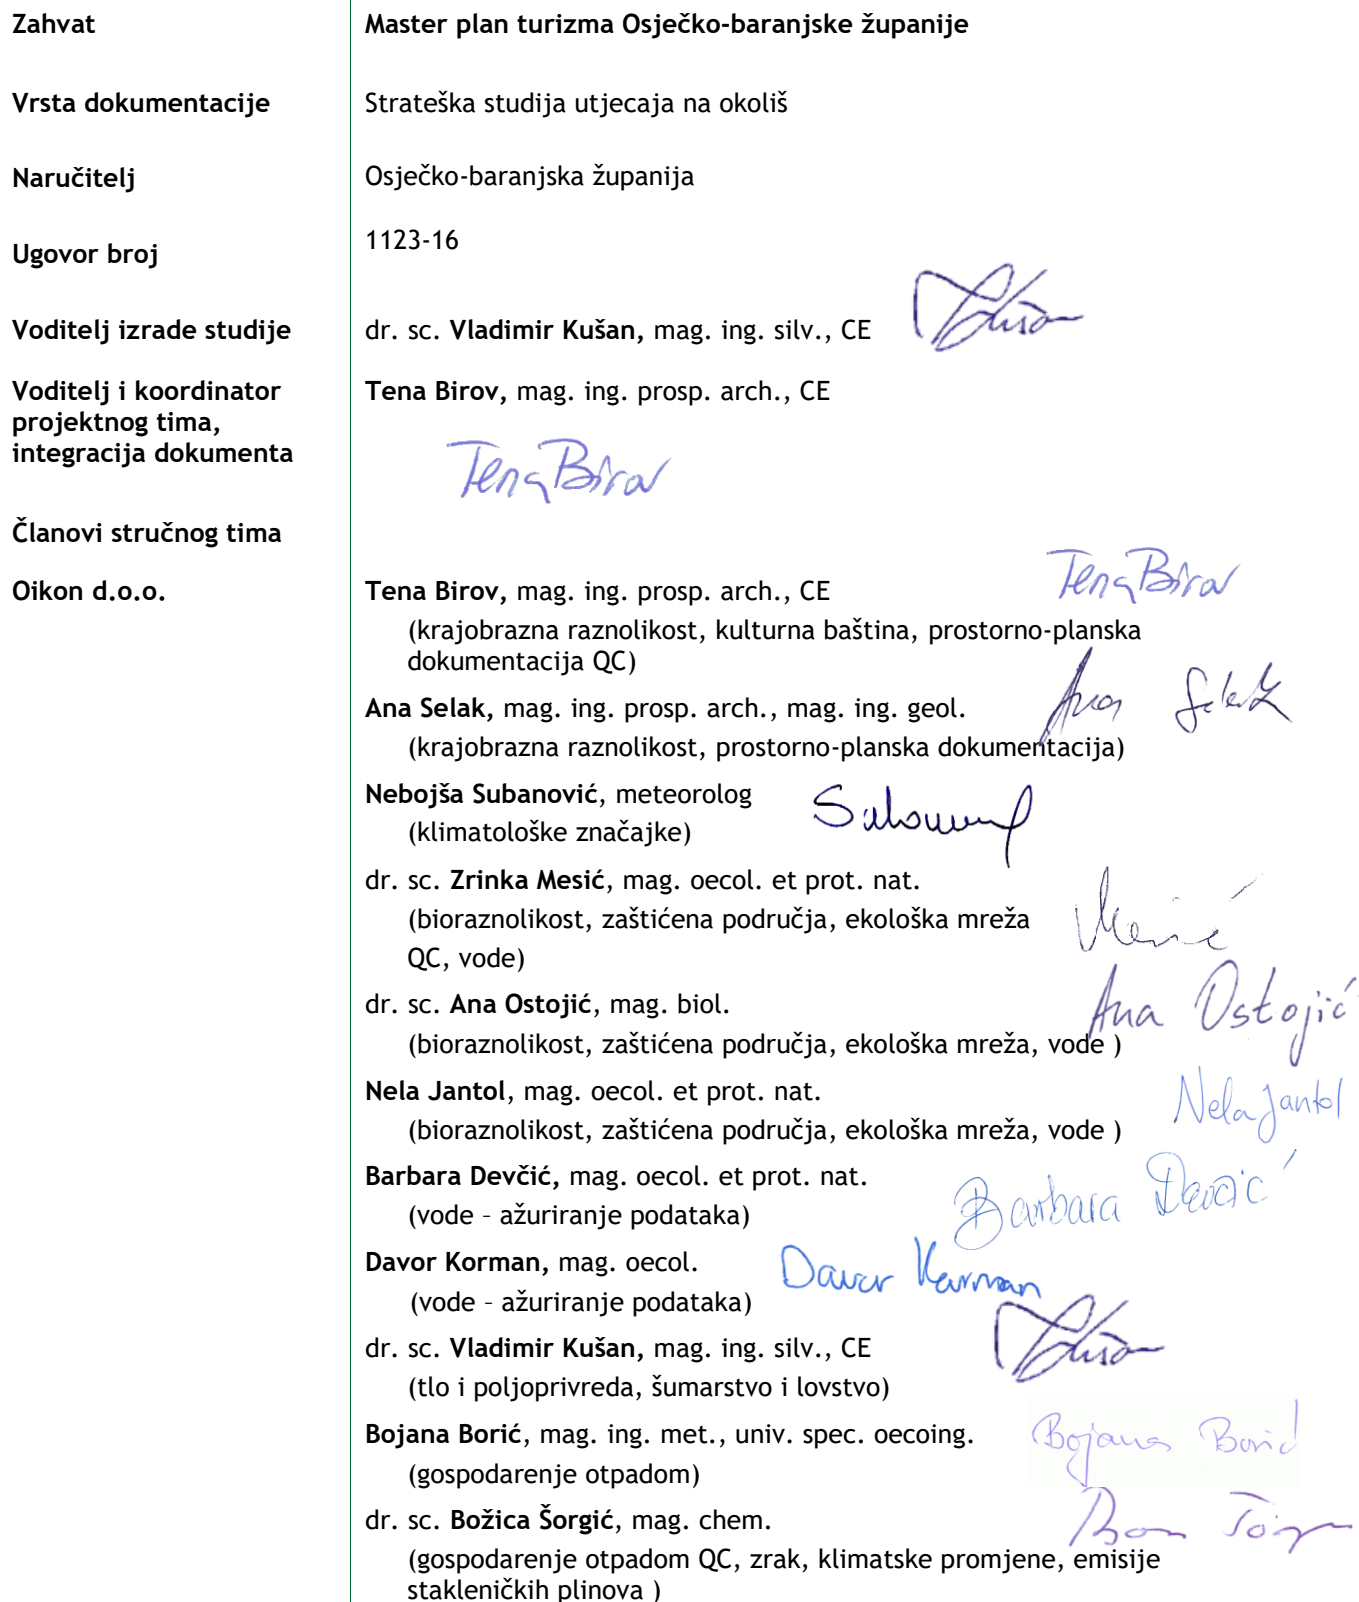 Zahvat
Master plan turizma Osječko-baranjske županije
Vrsta dokumentacije
Strateška studija utjecaja na okoliš
Naručitelj
Osječko-baranjska županija
Ugovor broj
1123-16
Voditelj izrade studije
dr. sc. Vladimir Kušan, mag. ing. silv., CE
Kušan
Voditelj i koordinator
projektnog tima,
integracija dokumenta
Tena Birov, mag. ing. prosp. arch., CE
Tena Birov
Članovi stručnog tima
Oikon d.o.o.
Tena Birov, mag. ing. prosp. arch., CE
Tena Birov
(krajobrazna raznolikost, kulturna baština, prostorno-planska
dokumentacija QC)
Ana Selak, mag. ing. prosp. arch., mag. ing. geol.
Ana Selak
(krajobrazna raznolikost, prostorno-planska dokumentacija)
Nebojša Subanović, meteorolog
(klimatološke značajke)
dr. sc. Zrinka Mesić, mag. oecol. et prot. nat.
(bioraznolikost, zaštićena područja, ekološka mreža
QC, vode)
Mesić
dr. sc. Ana Ostojić, mag. biol.
Ana Ostojić
(bioraznolikost, zaštićena područja, ekološka mreža, vode )
Nela Jantol, mag. oecol. et prot. nat.
Nela Jantol
(bioraznolikost, zaštićena područja, ekološka mreža, vode )
Barbara Devčić, mag. oecol. et prot. nat.
Barbara Devčić
(vode – ažuriranje podataka)
Davor Korman, mag. oecol.
Davor Korman
(vode – ažuriranje podataka)
dr. sc. Vladimir Kušan, mag. ing. silv., CE
Kušan
(tlo i poljoprivreda, šumarstvo i lovstvo)
Bojana Borić, mag. ing. met., univ. spec. oecoing.
Bojana Borić
(gospodarenje otpadom)
dr. sc. Božica Šorgić, mag. chem.
(gospodarenje otpadom QC, zrak, klimatske promjene, emisije
stakleničkih plinova )